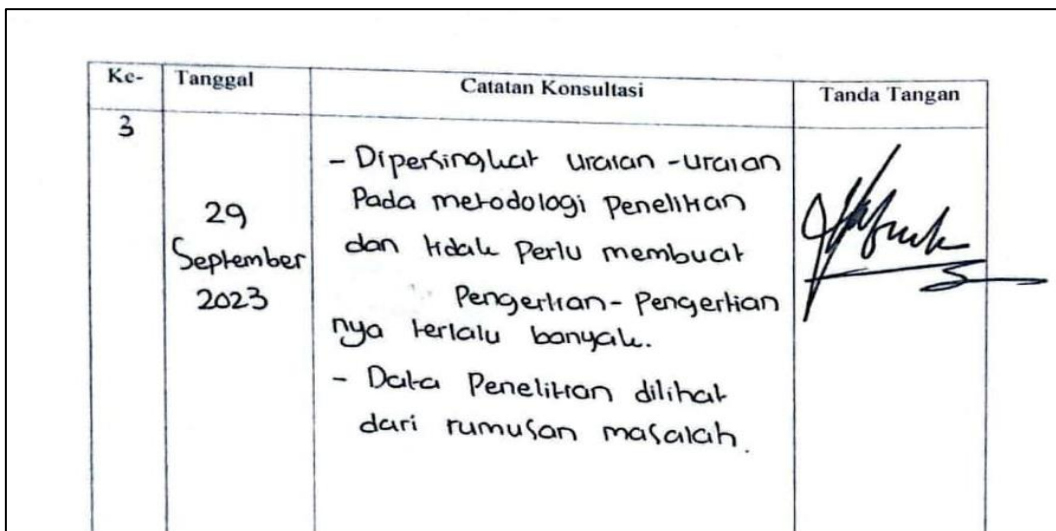 Ke- Tanggal Catatan Konsultasi Tanda Tangan
3
29
September
2023
- Dipersingkat uraian-uraian
Pada metodologi Penelitian
dan tidak Perlu membuat
Pengertian-Pengertian
nya terlalu banyak.
- Data Penelitian dilihat
dari rumusan masalah.